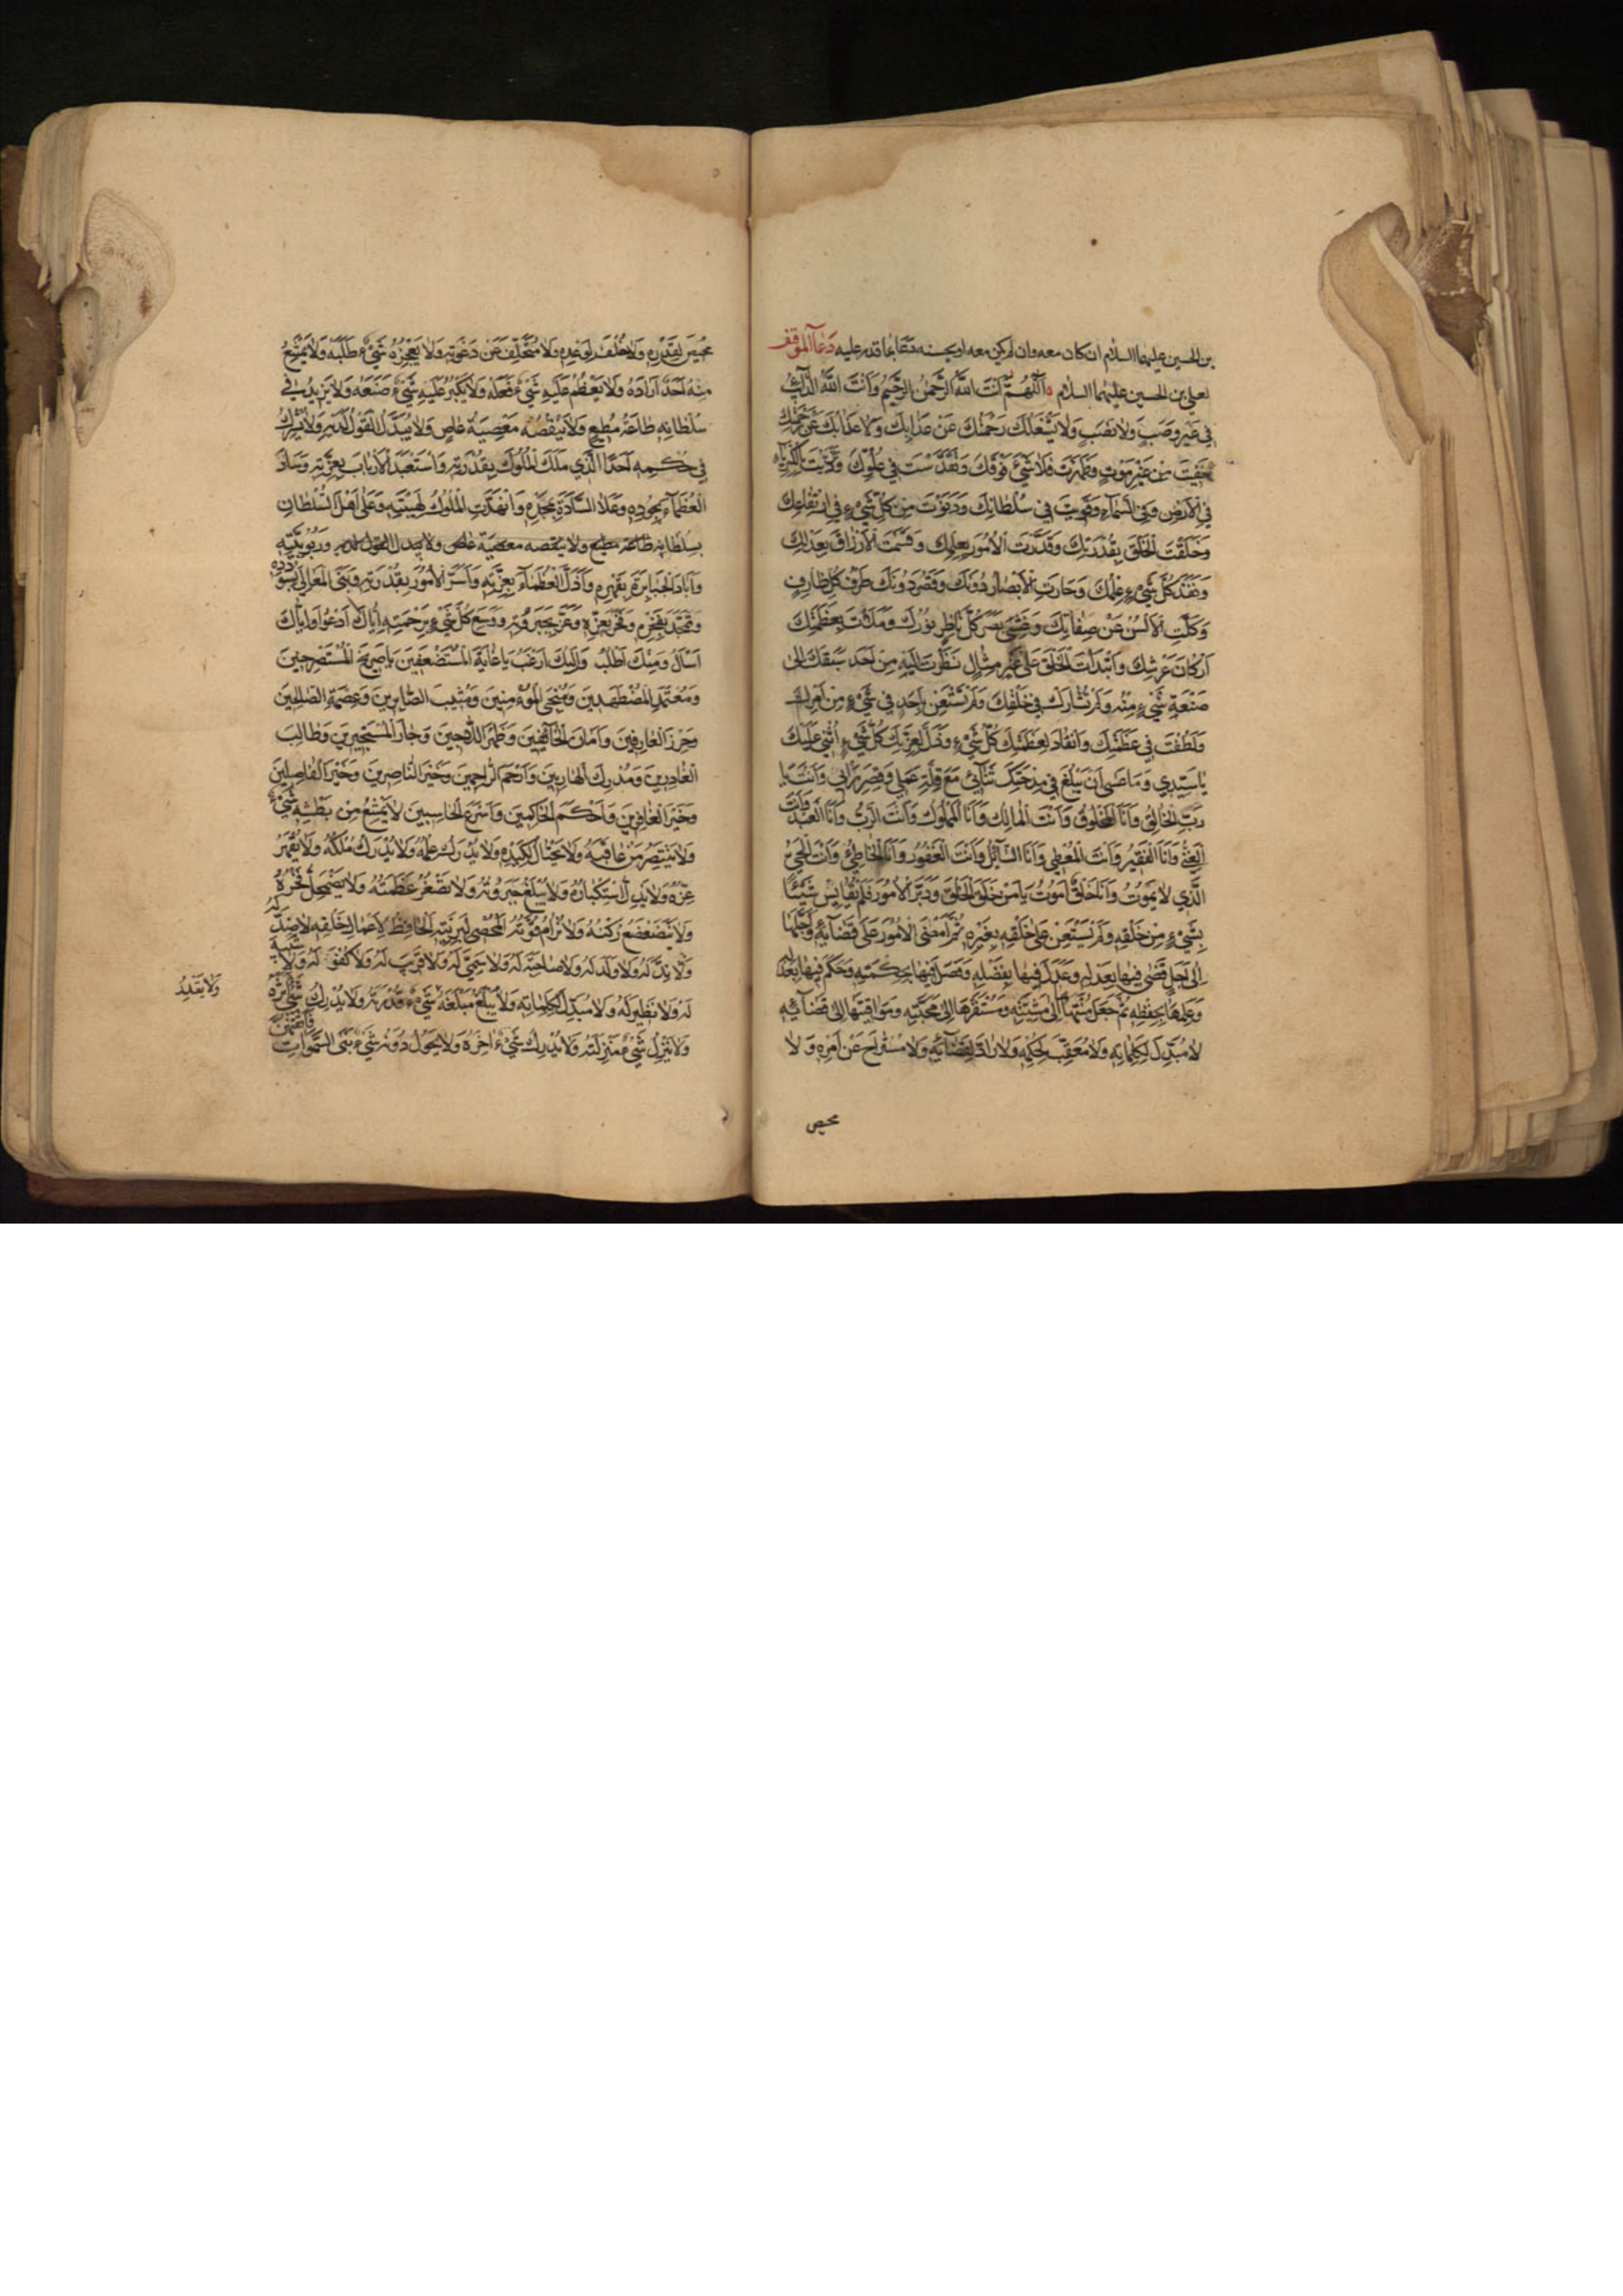 بن الحسين عليهما السلام ان كان معه وان لم يكن معه او يحسنه دعا بما قدر عليه دعاء الموقف
لعلي بن الحسين عليهما السلام اَللّٰهُمَّ اَنْتَ اللهُ الرَّحْمٰنُ الرَّحيمُ وَاَنْتَ اللهُ الدّآئِبُ
في غَيْرِ وَصَبٍ وَلا نَصَبٍ وَلا يَشْغَلُكَ رَحْمَتُكَ عَنْ عَذابِكَ وَلا عَذابُكَ عَنْ رَحْمَتِكَ
خَفيتَ مِنْ غَيْرِ مَوْتٍ وَظَهَرْتَ فَلا شَيْءَ فَوْقَكَ وَتَقَدَّسْتَ في عُلُوِّكَ وَتَرَدَّيْتَ بِالْكِبْرِيآءِ
فِي الْاَرْضِ وَفِي السَّمآءِ وَقَوِيتَ في سُلْطانِكَ وَدَنَوْتَ مِنْ كُلِّ شَيْءٍ فِي ارْتِفاعِكَ
وَخَلَقْتَ الْخَلْقَ بِقُدْرَتِكَ وَقَدَّرْتَ الْاُمُورَ بِعِلْمِكَ وَقَسَّمْتَ الْاَرْزاقَ بِعَدْلِكَ
وَنَفَذَ كُلَّ شَيْءٍ عِلْمُكَ وَحارَتِ الْاَبْصارُ دُونَكَ وَقَصُرَ دُونَكَ طَرْفُ كُلِّ طارِفٍ
وَكَلَّتِ الْاَلْسُنُ عَنْ صِفاتِكَ وَغَشِيَ بَصَرَ كُلِّ ناظِرٍ نُورُكَ وَمَلَأْتَ بِعَظَمَتِكَ
اَرْكانَ عَرْشِكَ وَابْتَدَأْتَ الْخَلْقَ عَلى غَيْرِ مِثالٍ نَظَرْتَ اِلَيْهِ مِنْ اَحَدٍ سَبَقَكَ اِلى
صَنْعَةِ شَيْءٍ مِنْهُ وَلَمْ تُشارَكْ في خَلْقِكَ وَلَمْ تَسْتَعِنْ بِاَحَدٍ في شَيْءٍ مِنْ اَمْرِكَ
وَلَطُفْتَ في عَظَمَتِكَ وَانْقادَ لِعَظَمَتِكَ كُلُّ شَيْءٍ وَذَلَّ لِعِزَّتِكَ كُلُّ شَيْءٍ اُثْني عَلَيْكَ
يا سَيِّدي وَما عَسى اَنْ يَبْلُغَ في مِدْحَتِكَ ثَنآئي مَعَ قِلَّةِ عَمَلي وَقِصَرِ رَأْيي وَاَنْتَ يا
رَبِّ الْخالِقُ وَاَنَا الْمَخْلُوقُ وَاَنْتَ الْمالِكُ وَاَنَا الْمَمْلُوكُ وَاَنْتَ الرَّبُّ وَاَنَا الْعَبْدُ وَاَنْتَ
الْغَنِيُّ وَاَنَا الْفَقيرُ وَاَنْتَ الْمُعْطي وَاَنَا السّآئِلُ وَاَنْتَ الْغَفُورُ وَاَنَا الْخاطِئُ وَاَنْتَ الْحَيُّ
الَّذي لا يَمُوتُ وَاَنَا خَلْقٌ اَمُوتُ يا مَنْ خَلَقَ الْخَلْقَ وَدَبَّرَ الْاُمُورَ فَلَمْ يُقايِسْ شَيْئًا
بِشَيْءٍ مِنْ خَلْقِهِ وَلَمْ يَسْتَعِنْ عَلى خَلْقِهِ بِغَيْرِهِ ثُمَّ اَمْضَى الْاُمُورَ عَلى قَضآئِهِ وَاَجَّلَها
اِلى اَجَلٍ قَضى فيها بِعَدْلِهِ وَعَدَلَ فيها بِفَضْلِهِ وَفَصَلَ فيها بِحِكْمَتِهِ وَحَكَمَ فيها بِعَدْلِهِ
وَعَلِمَها بِحِفْظِهِ ثُمَّ جَعَلَ مُنْتَهاها اِلى مَشِيَّتِهِ وَمُسْتَقَرَّها اِلى مَحَبَّتِهِ وَمَواقيتَها اِلى قَضآئِهِ
لا مُبَدِّلَ لِكَلِماتِهِ وَلا مُعَقِّبَ لِحُكْمِهِ وَلا رادَّ لِقَضآئِهِ وَلا مُسْتَراحَ عَنْ اَمْرِهِ وَلا
محيص
مَحيصَ لِقَدَرِهِ وَلا خُلْفَ لِوَعْدِهِ وَلا مُتَخَلِّفَ عَنْ دَعْوَتِهِ وَلا يُعْجِزُهُ شَيْءٌ طَلَبَهُ وَلا يَمْتَنِعُ
مِنْهُ اَحَدٌ اَرادَهُ وَلا يَعْظُمُ عَلَيْهِ شَيْءٌ فَعَلَهُ وَلا يَكْبُرُ عَلَيْهِ شَيْءٌ صَنَعَهُ وَلا يَزيدُ في
سُلْطانِهِ طاعَةُ مُطيعٍ وَلا يَنْقُصُهُ مَعْصِيَةُ عاصٍ وَلا يُبَدَّلُ الْقَوْلُ لَدَيْهِ وَلا يُشْرِكُ
في حُكْمِهِ اَحَدًا اَلَّذي مَلَكَ الْمُلُوكَ بِقُدْرَتِهِ وَاسْتَعْبَدَ الْاَرْبابَ بِعِزَّتِهِ وَسادَ
الْعُظَمآءَ بِجُودِهِ وَعَلَا السّادَةَ بِمَجْدِهِ وَانْهَدَّتِ الْمُلُوكُ لِهَيْبَتِهِ وَعَلا اَهْلَ السُّلْطانِ
بسلطانه طاعة مطيع ولا ينقصه معصية عاص ولا يبدل القول لديه وَرُبُوبِيَّتِهِ
وَاَبادَ الْجَبابِرَةَ بِقَهْرِهِ وَاَذَلَّ الْعُظَمآءَ بِعِزِّهِ وَاَسَّسَ الْاُمُورَ بِقُدْرَتِهِ وَبَنَى الْمَعالِيَ بِسُؤْدَدِهِ
وَتَمَجَّدَ بِفَخْرِهِ وَفَخَرَ بِعِزِّهِ وَعَزَّ بِجَبَرُوتِهِ وَوَسِعَ كُلَّ شَيْءٍ بِرَحْمَتِهِ اِيّاكَ اَدْعُو وَاِيّاكَ
اَسْأَلُ وَمِنْكَ اَطْلُبُ وَاِلَيْكَ اَرْغَبُ يا غايَةَ الْمُسْتَضْعَفينَ يا صَريخَ الْمُسْتَصْرِخينَ
وَمُعْتَمَدَ الْمُضْطَهَدينَ وَمُنْجِيَ الْمُؤْمِنينَ وَمُثيبَ الصّابِرينَ وَعِصْمَةَ الصّالِحينَ
وَحِرْزَ الْعارِفينَ وَاَمانَ الْخآئِفينَ وَظَهْرَ اللّاجينَ وَجارَ الْمُسْتَجيرينَ وَطالِبَ
الْغادِرينَ وَمُدْرِكَ الْهارِبينَ وَاَرْحَمَ الرّاحِمينَ وَخَيْرَ النّاصِرينَ وَخَيْرَ الْفاصِلينَ
وَخَيْرَ الْغافِرينَ وَاَحْكَمَ الْحاكِمينَ وَاَسْرَعَ الْحاسِبينَ لا يَمْتَنِعُ مِنْ بَطْشِهِ شَيْءٌ
وَلا يَنْتَصِرُ مَنْ عاقَبَهُ وَلا يُحْتالُ لِكَيْدِهِ وَلا يُدْرَكُ عِلْمُهُ وَلا يُدْرَأُ مُلْكُهُ وَلا يُقْهَرُ
عِزُّهُ وَلا يُذَلُّ اسْتِكْبارُهُ وَلا يُبْلَغُ جَبَرُوتُهُ وَلا تَصْغُرُ عَظَمَتُهُ وَلا يَضْمَحِلُّ فَخْرُهُ
وَلا يَتَضَعْضَعُ رُكْنُهُ وَلا تُرامُ قُوَّتُهُ الْمُحْصي لِبَرِيَّتِهِ الْحافِظُ اَعْمالَ خَلْقِهِ لا ضِدَّ لَهُ
وَلا نِدَّ لَهُ وَلا وَلَدَ لَهُ وَلا صاحِبَةَ لَهُ وَلا سَمِيَّ لَهُ وَلا قَريبَ لَهُ وَلا كُفْوَ لَهُ وَلا شَبيهَ
لَهُ وَلا نَظيرَ لَهُ وَلا مُبَدِّلَ لِكَلِماتِهِ وَلا يَبْلُغُ مَبْلَغَهُ شَيْءٌ وَلا يَقْدِرُ شَيْءٌ قُدْرَتَهُ وَلا يُدْرِكُ شَيْءٌ اَثَرَهُ
وَلا يَنْزِلُ شَيْءٌ مَنْزِلَتَهُ وَلا يُدْرَكُ شَيْءٌ اَحْرَزَهُ وَلا يَحُولُ دُونَهُ شَيْءٌ بَنَى السَّمٰواتِ فَاَتْقَنَهُنَّ
وَلا يَقْدِرُ